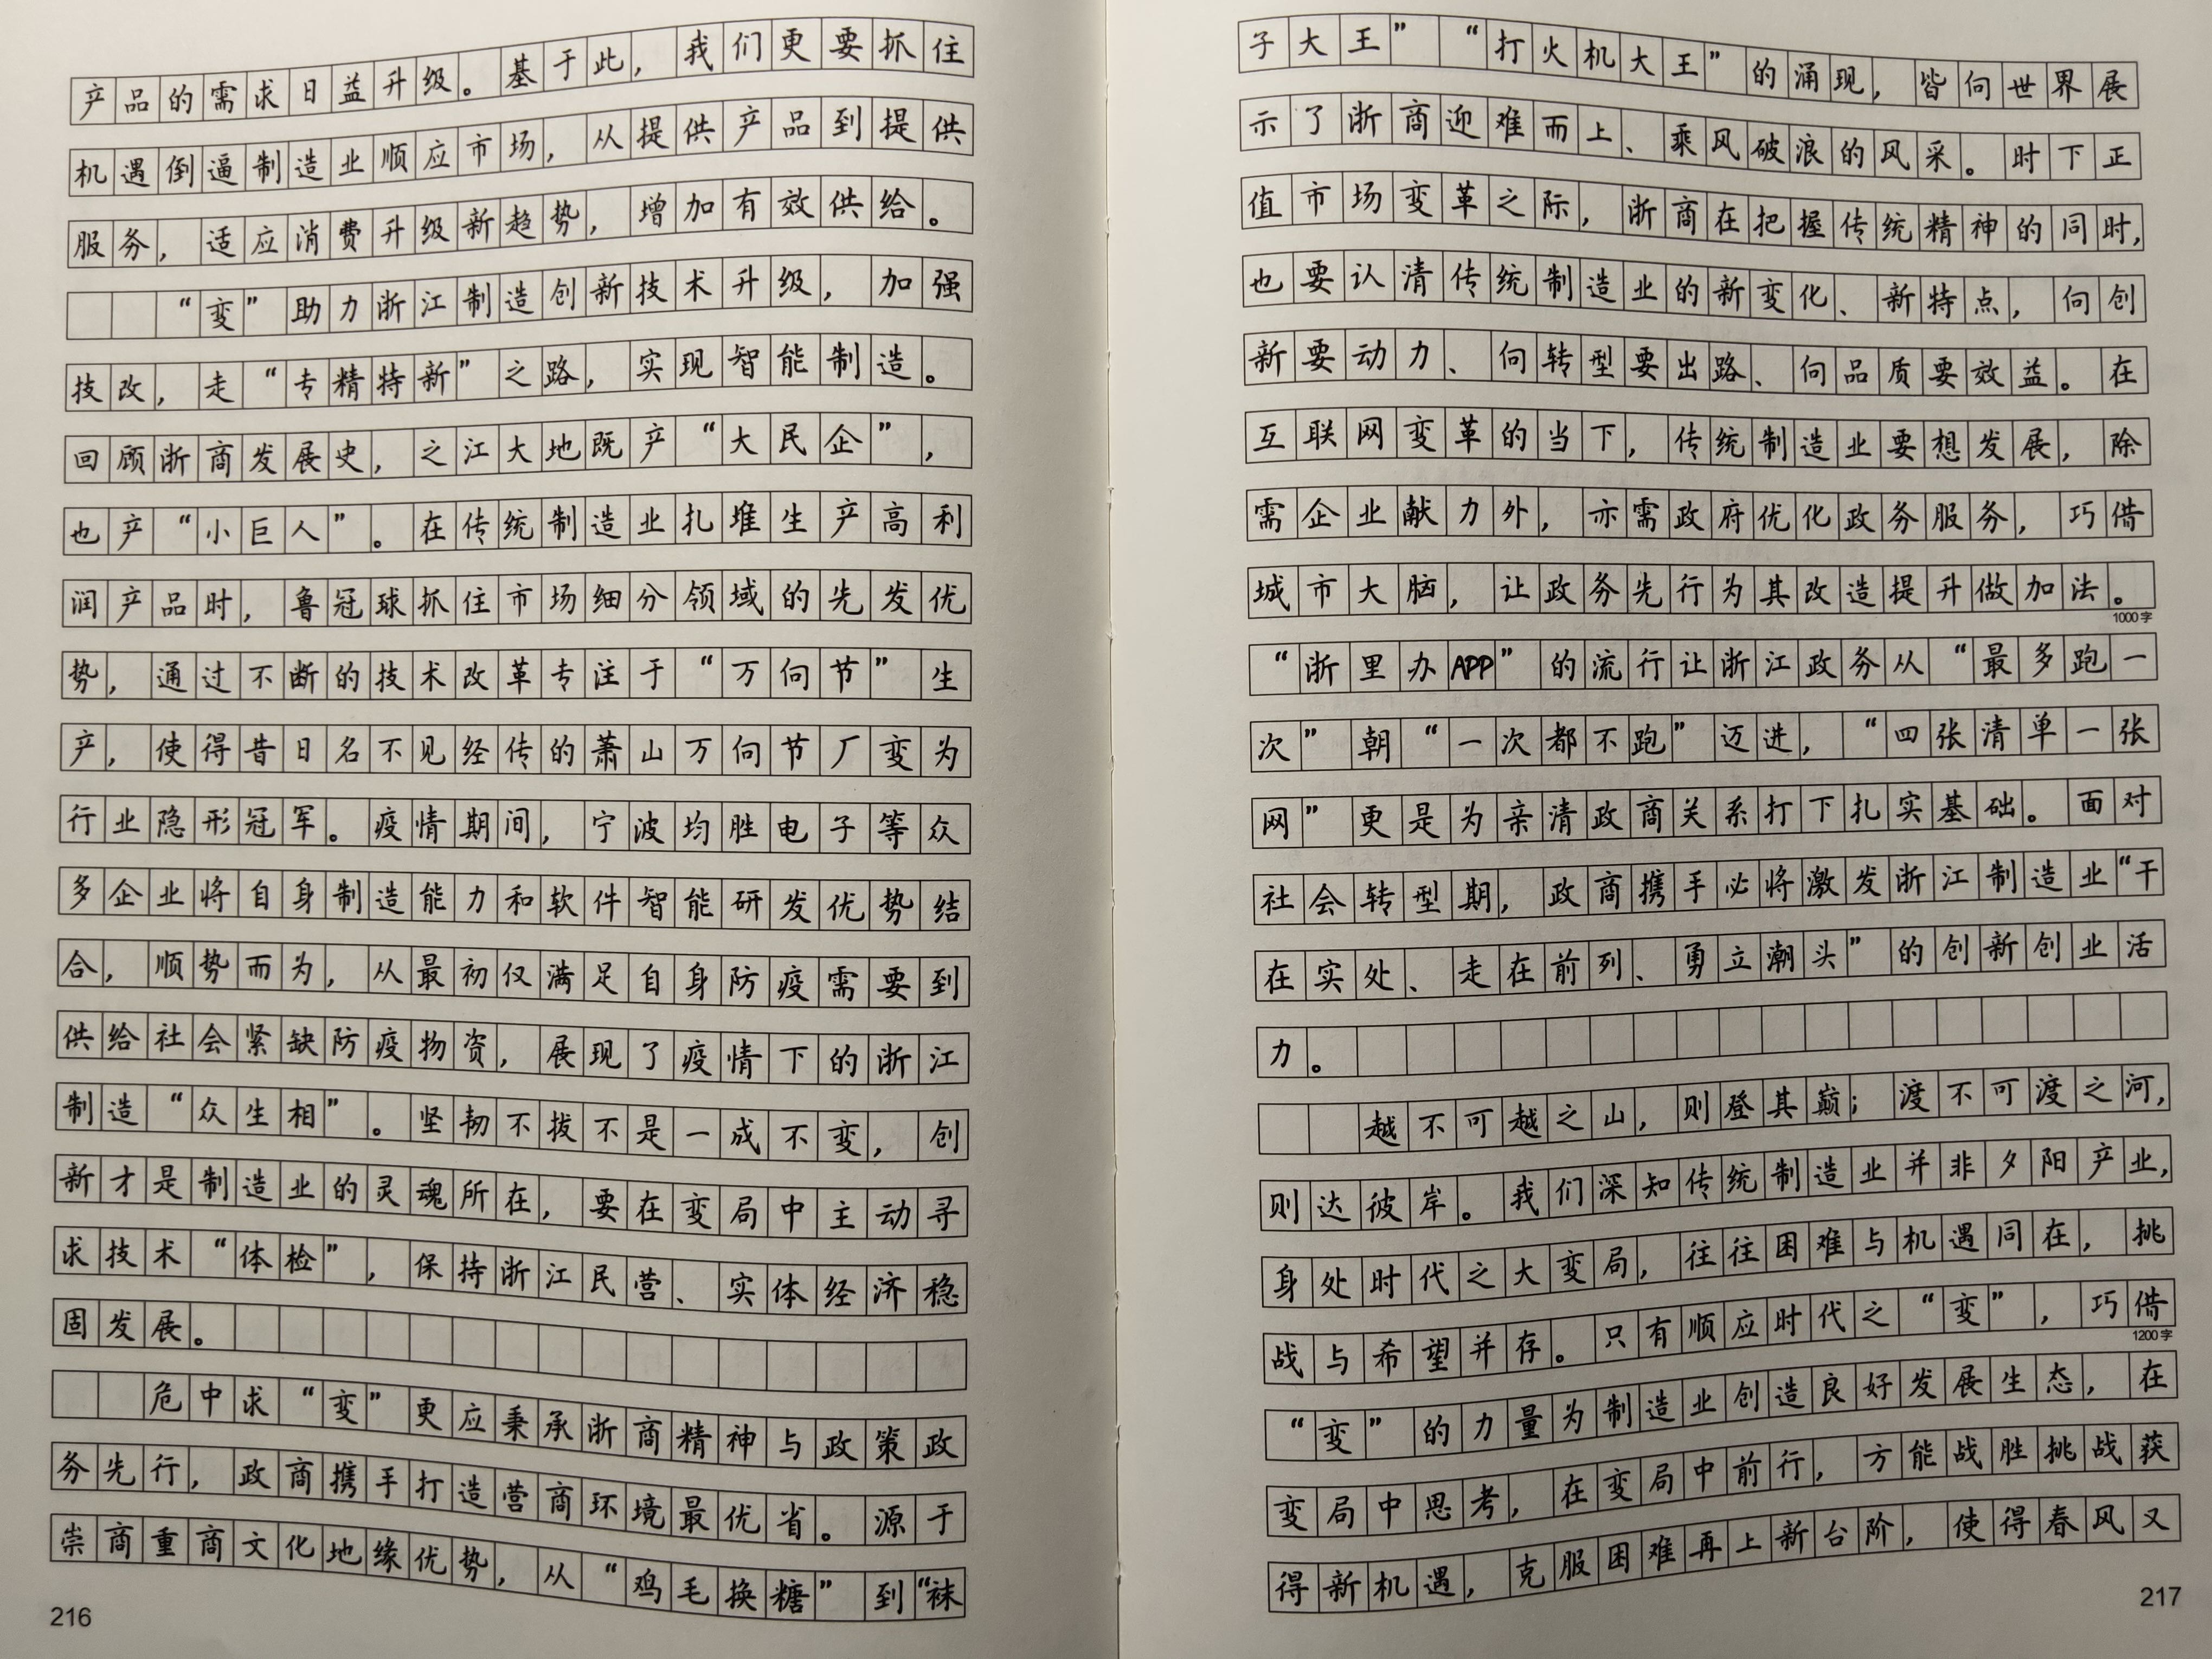 产品的需求日益升级。基于此，我们更要抓住
机遇倒逼制造业顺应市场，从提供产品到提供
服务，适应消费升级新趋势，增加有效供给。
“变”助力浙江制造创新技术升级，加强
技改，走“专精特新”之路，实现智能制造。
回顾浙商发展史，之江大地既产“大民企”，
也产“小巨人”。在传统制造业扎堆生产高利
润产品时，鲁冠球抓住市场细分领域的先发优
势，通过不断的技术改革专注于“万向节”生
产，使得昔日名不见经传的萧山万向节厂变为
行业隐形冠军。疫情期间，宁波均胜电子等众
多企业将自身制造能力和软件智能研发优势结
合，顺势而为，从最初仅满足自身防疫需要到
供给社会紧缺防疫物资，展现了疫情下的浙江
制造“众生相”。坚韧不拔不是一成不变，创
新才是制造业的灵魂所在，要在变局中主动寻
求技术“体检”，保持浙江民营、实体经济稳
固发展。
危中求“变”更应秉承浙商精神与政策政
务先行，政商携手打造营商环境最优省。源于
崇商重商文化地缘优势，从“鸡毛换糖”到“袜
216
子大王”“打火机大王”的涌现，皆向世界展
示了浙商迎难而上、乘风破浪的风采。时下正
值市场变革之际，浙商在把握传统精神的同时，
也要认清传统制造业的新变化、新特点，向创
新要动力、向转型要出路、向品质要效益。在
互联网变革的当下，传统制造业要想发展，除
需企业献力外，亦需政府优化政务服务，巧借
城市大脑，让政务先行为其改造提升做加法。
1000字
“浙里办APP”的流行让浙江政务从“最多跑一
次”朝“一次都不跑”迈进，“四张清单一张
网”更是为亲清政商关系打下扎实基础。面对
社会转型期，政商携手必将激发浙江制造业“干
在实处、走在前列、勇立潮头”的创新创业活
力。
越不可越之山，则登其巅；渡不可渡之河，
则达彼岸。我们深知传统制造业并非夕阳产业，
身处时代之大变局，往往困难与机遇同在，挑
战与希望并存。只有顺应时代之“变”，巧借
1200字
“变”的力量为制造业创造良好发展生态，在
变局中思考，在变局中前行，方能战胜挑战获
得新机遇，克服困难再上新台阶，使得春风又
217